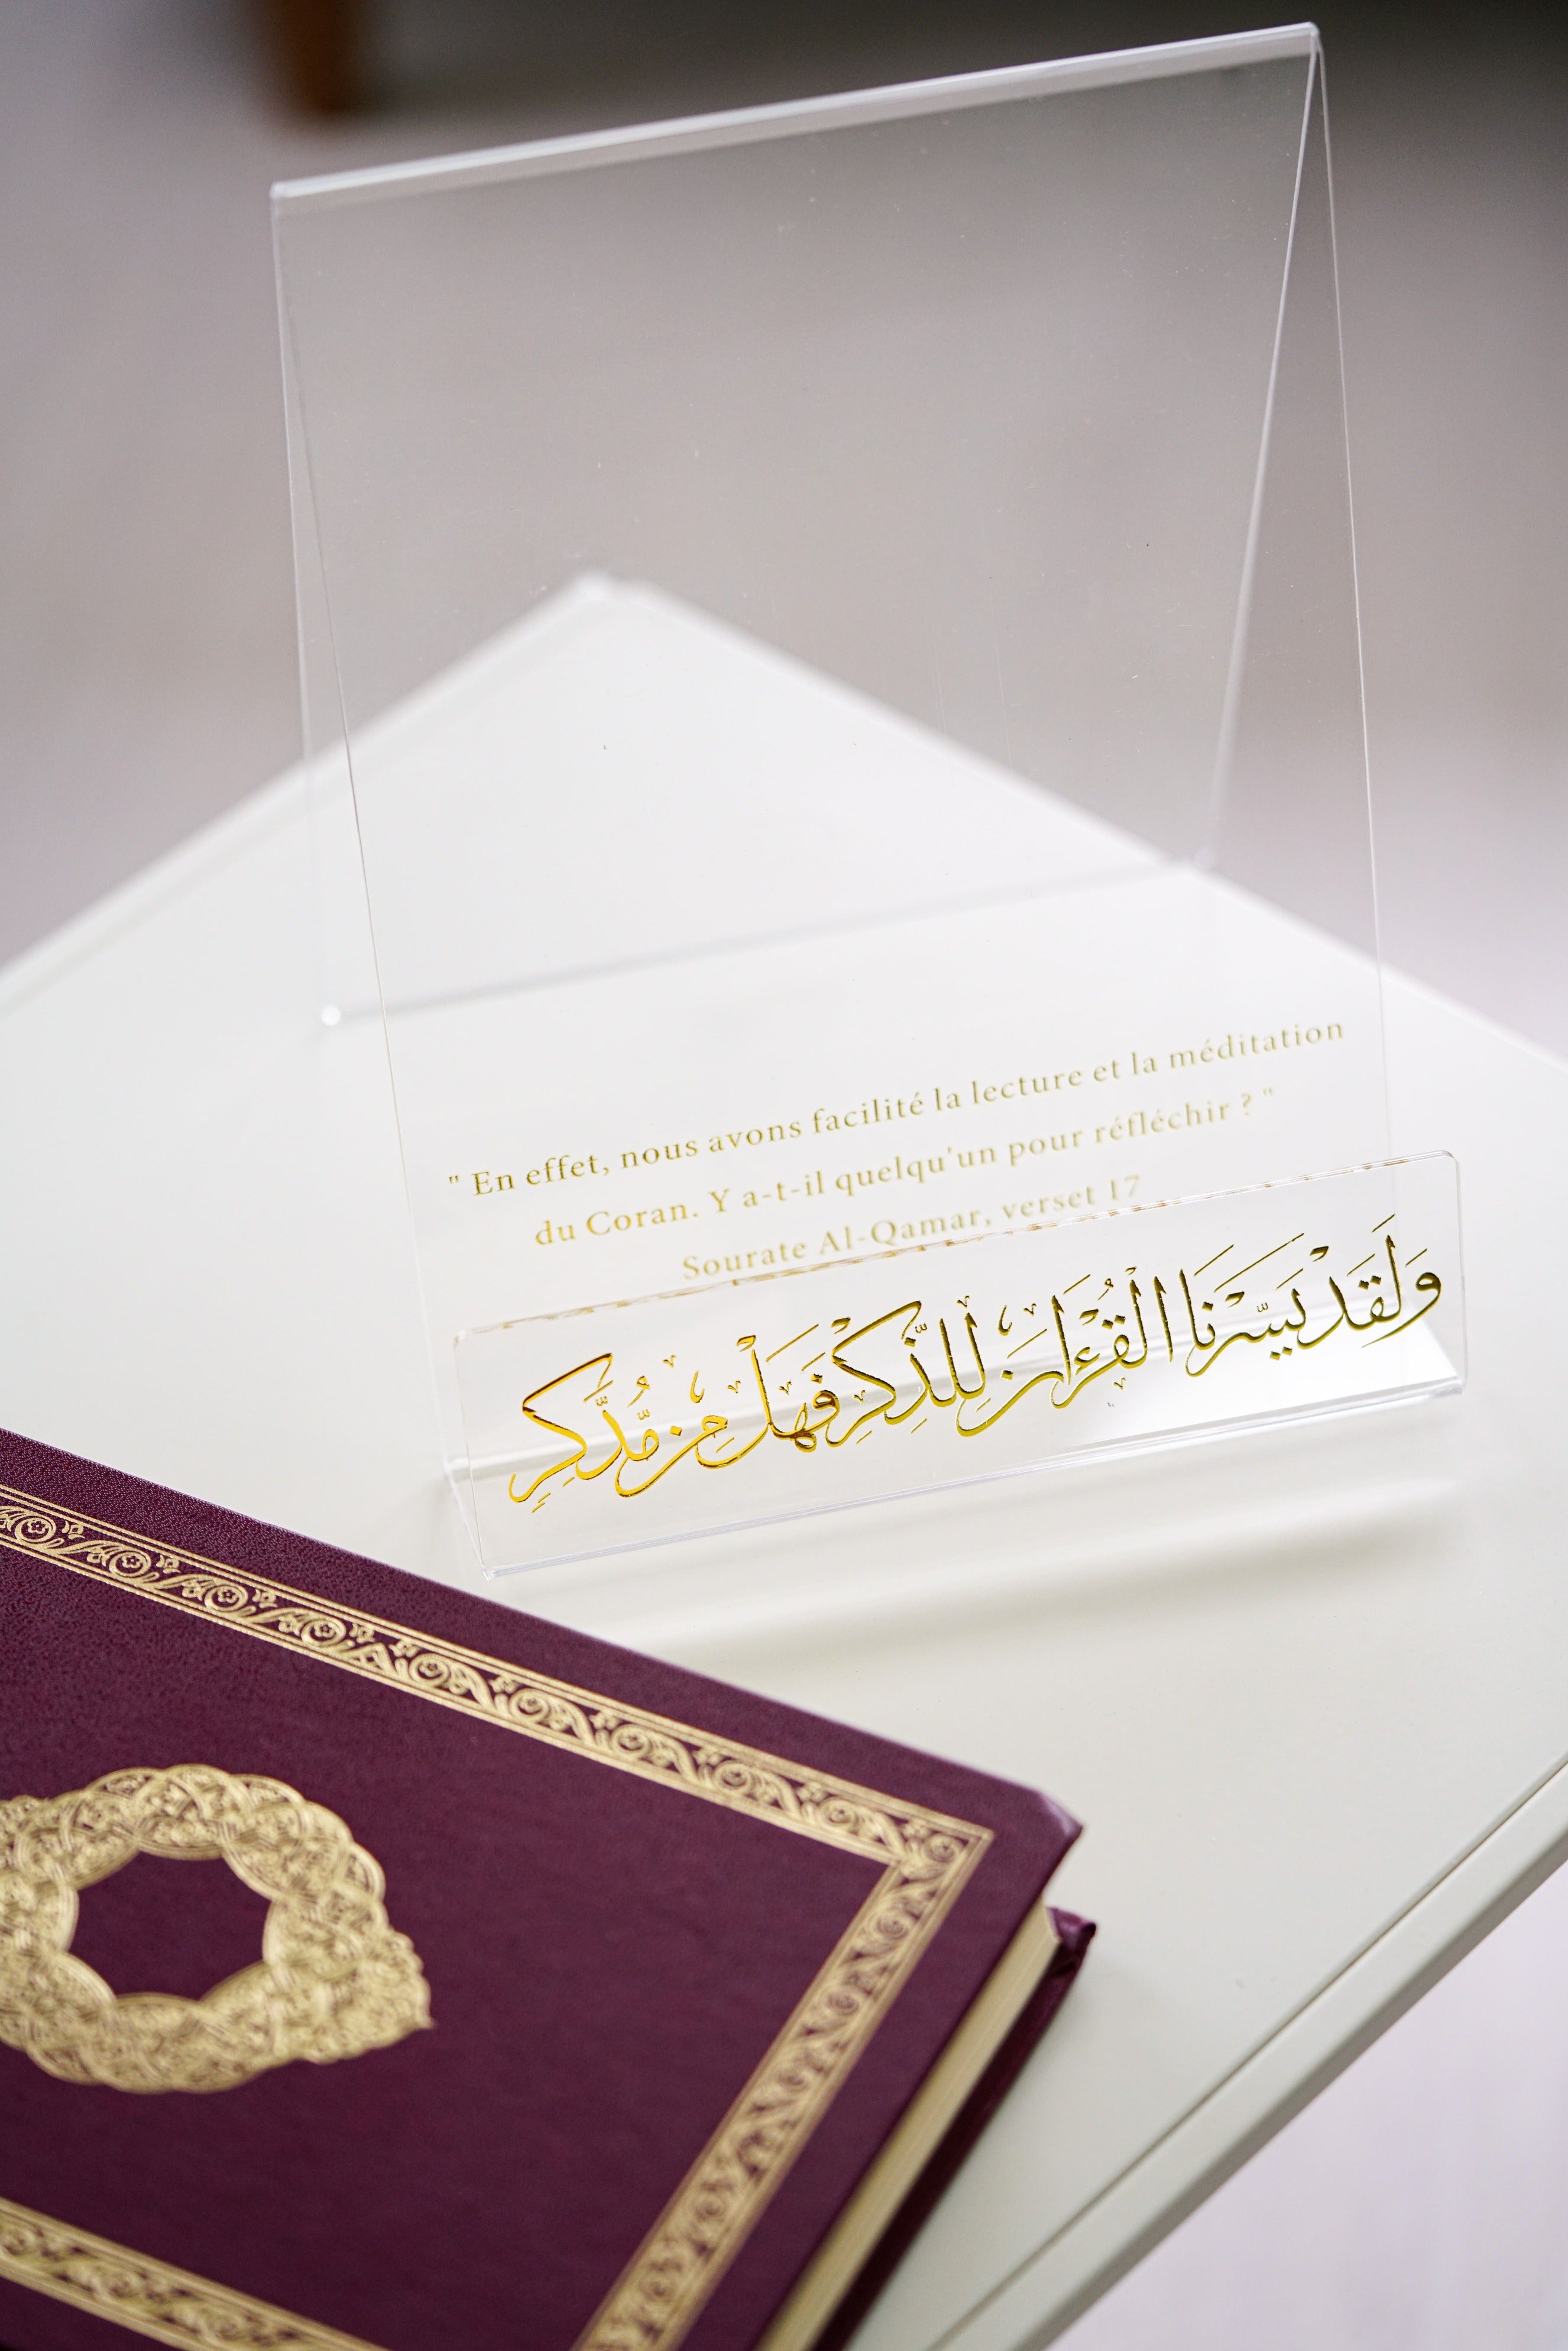 " En effet, nous avons facilité la lecture et la méditation
du Coran. Y a-t-il quelqu'un pour réfléchir ? "
Sourate Al-Qamar, verset 17
وَلَقَدْ يَسَّرْنَا الْقُرْءَانَ لِلذِّكْرِ فَهَلْ مِن مُّدَّكِرٍ